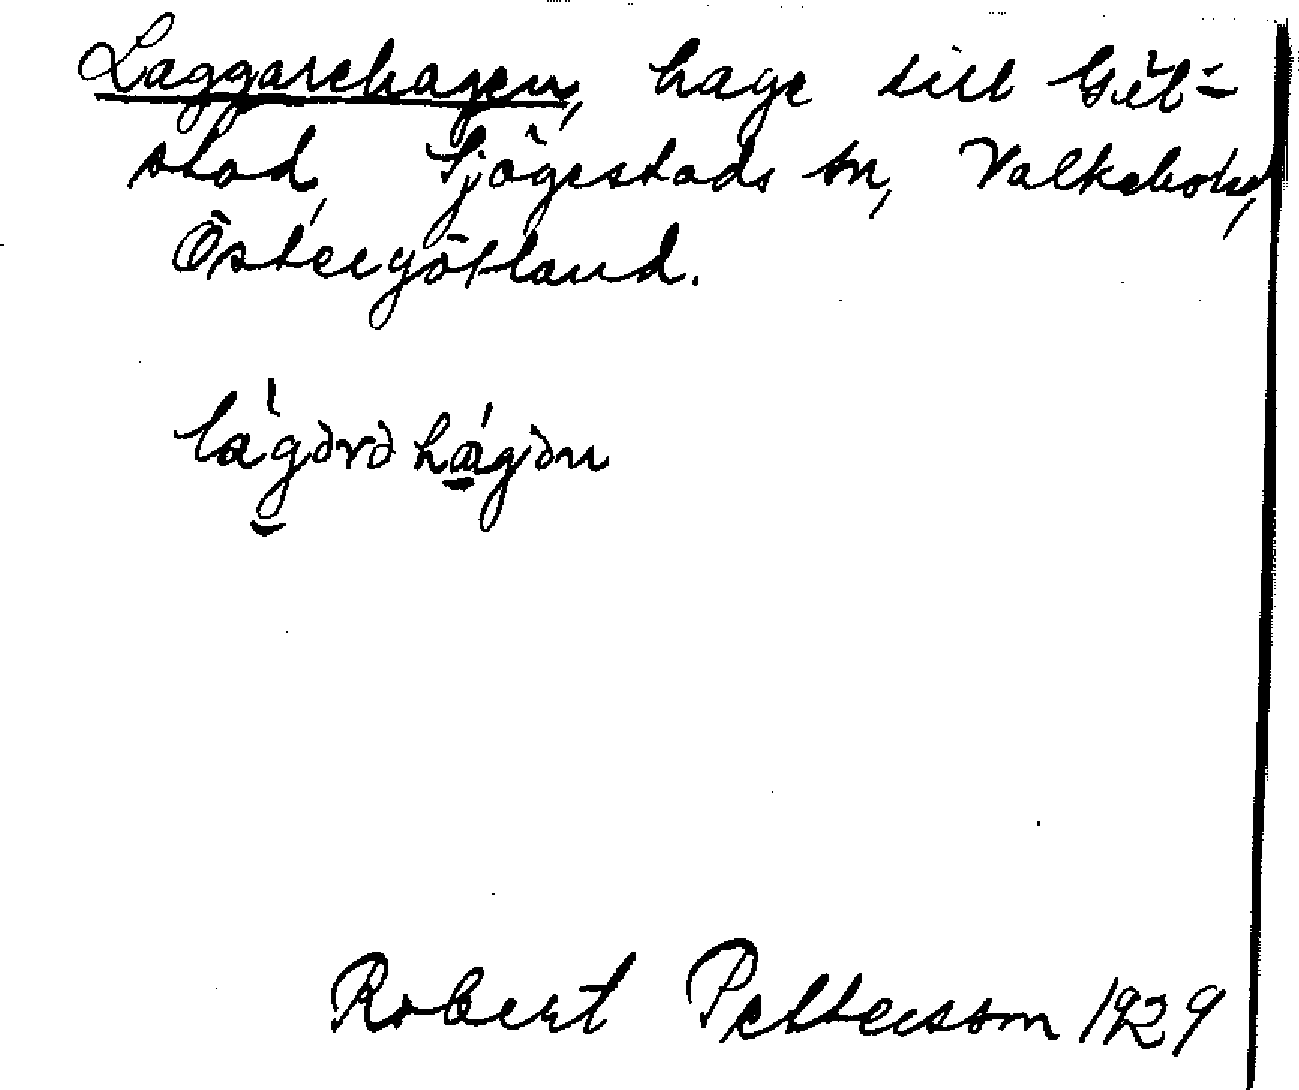 Laggarehagen, hage till Gil-
stad, Sjögestads sn, Valkebohd,
Östergötland.
làgərəhágən
Robert Pettersson 1929